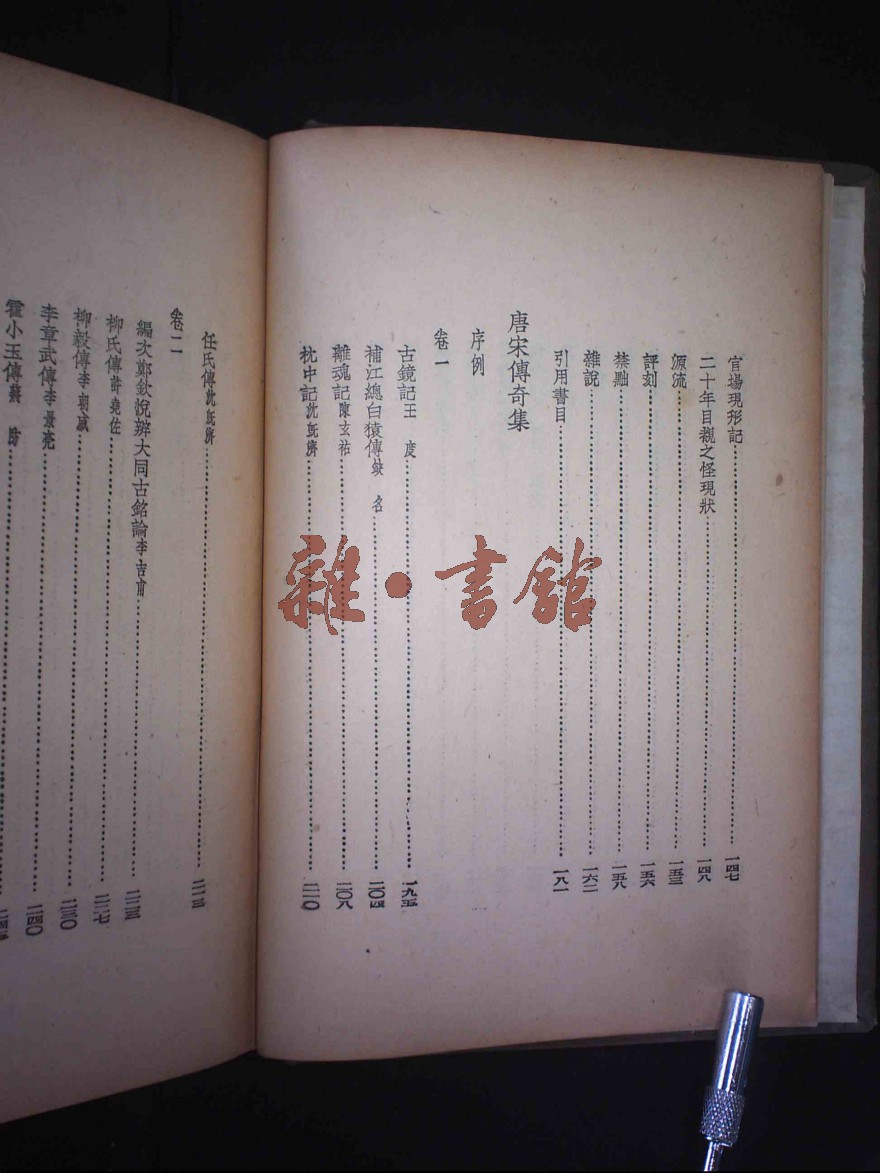 官場現形記……一四七
二十年目覩之怪現狀……一四八
源流……一五三
評刻……一五六
禁黜……一五八
雜說……一六二
引用書目……一八一
唐宋傳奇集
序例
卷一
古鏡記 王 度……一九五
補江總白猿傳 缺 名……二〇四
離魂記 陳玄祐……二〇八
枕中記 沈既濟……二一〇
任氏傳 沈既濟……二一三
卷二
編次鄭欽悅辨大同古銘論 李吉甫……二二三
柳氏傳 許堯佐……二二七
柳毅傳 李朝威……二三〇
李章武傳 李景亮……二四〇
霍小玉傳 蔣 防……
雜·書館